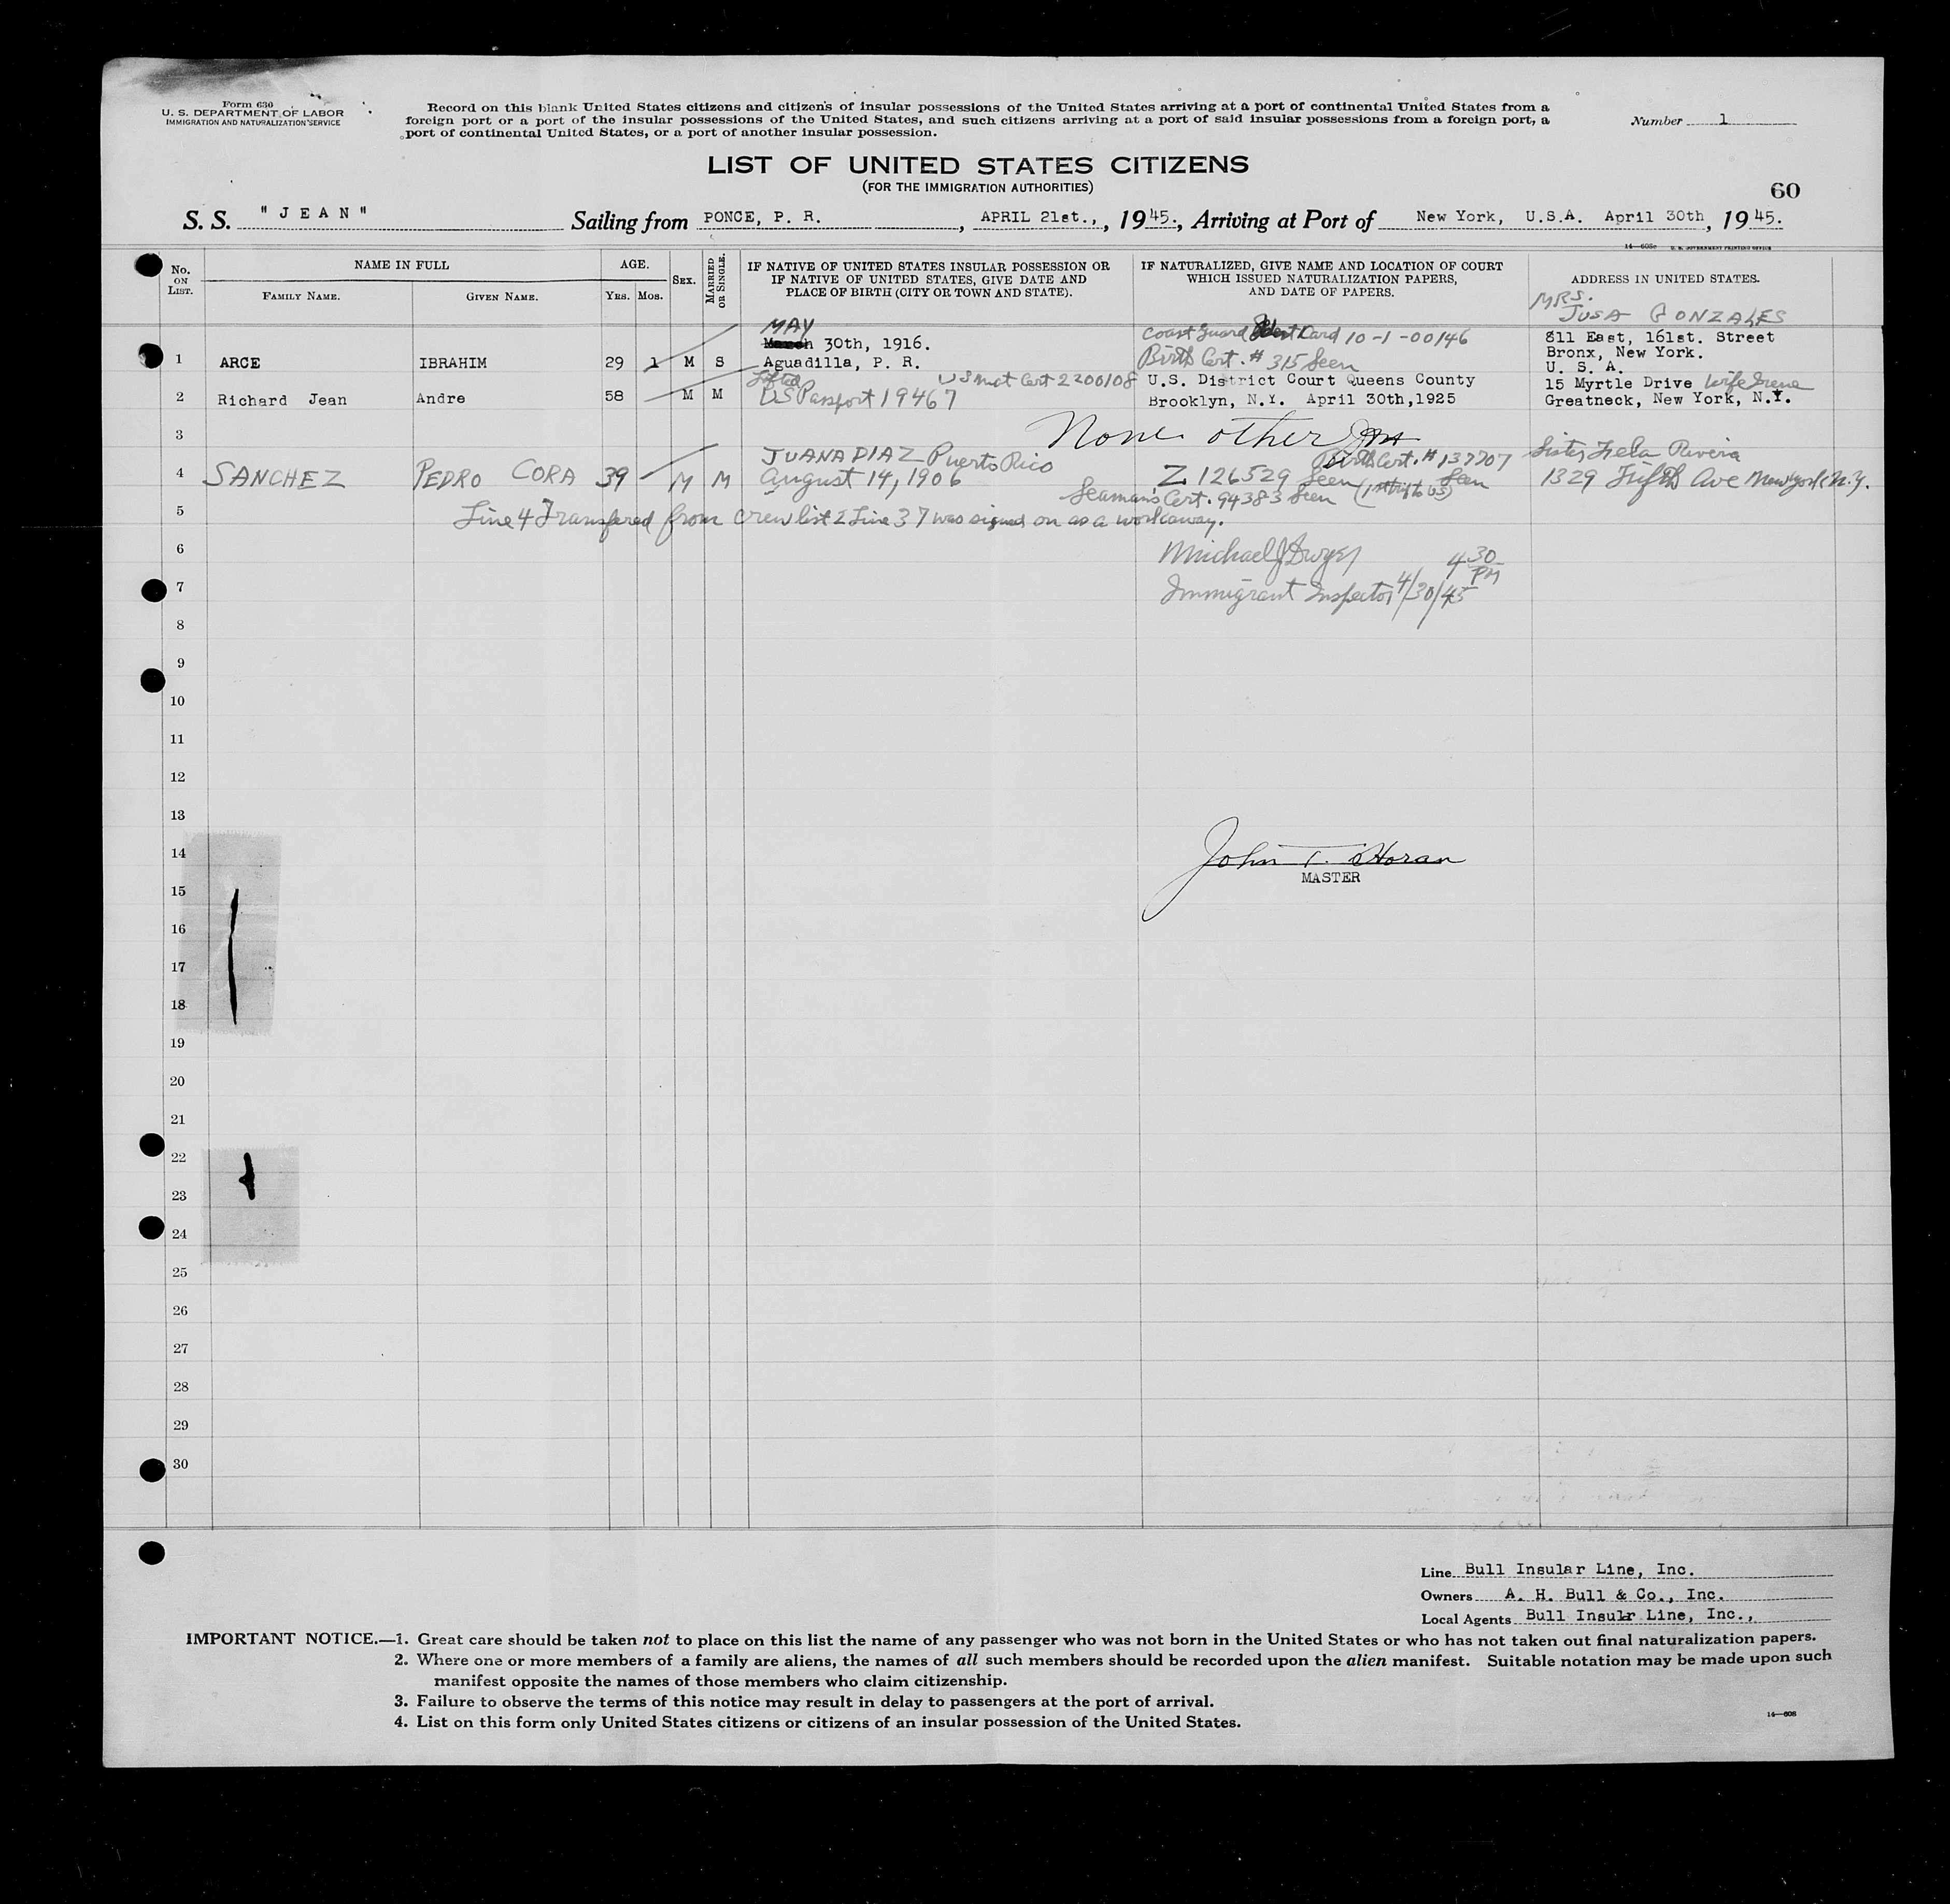 Form 630
U. S. DEPARTMENT OF LABOR
IMMIGRATION AND NATURALIZATION SERVICE
Record on this blank United States citizens and citizens of insular possessions of the United States arriving at a port of continental United States from a
foreign port or a port of the insular possessions of the United States, and such citizens arriving at a port of said insular possessions from a foreign port, a
port of continental United States, or a port of another insular possession.
Number 1
LIST OF UNITED STATES CITIZENS
(FOR THE IMMIGRATION AUTHORITIES)
60
S. S. "JEAN" Sailing from PONCE, P. R., APRIL 21st., 1945., Arriving at Port of New York, U.S.A. April 30th, 1945.
14—608c U. S. GOVERNMENT PRINTING OFFICE
No. ON LIST.
NAME IN FULL
FAMILY NAME.
GIVEN NAME.
AGE.
YRS. MOS.
SEX.
MARRIED OR SINGLE.
IF NATIVE OF UNITED STATES INSULAR POSSESSION OR
IF NATIVE OF UNITED STATES, GIVE DATE AND
PLACE OF BIRTH (CITY OR TOWN AND STATE).
IF NATURALIZED, GIVE NAME AND LOCATION OF COURT
WHICH ISSUED NATURALIZATION PAPERS,
AND DATE OF PAPERS.
ADDRESS IN UNITED STATES.
MRS.
JUSA GONZALES
MAY
March 30th, 1916.
Coast Guard Card 10-1-00146
811 East, 161st. Street
1 ARCE IBRAHIM 29 1 M S Aguadilla, P. R.
Birth Cert. # 315 Seen
Bronx, New York.
U. S. A.
Lifted US Nat Cert 2200108
U.S. District Court Queens County
15 Myrtle Drive Wife Irene
2 Richard Jean Andre 58 M M US Passport 19467
Brooklyn, N.Y. April 30th,1925
Greatneck, New York, N.Y.
3
None other
JUANA DIAZ Puerto Rico
Birth Cert. # 137707 Seen
Sister Fela Rivera
4 SANCHEZ PEDRO CORA 39 M M August 14, 1906
Z 126529 Seen
1329 Fifth Ave New York N.Y.
Seaman's Cert. 94383 Seen
5
Line 4 Transfered from crew list 2 Line 37 was signed on as a workaway.
6
Michael J Dwyer 4 30 PM
7
Immigrant Inspector 4/30/45
8
9
10
11
12
13
14
John T. Horan
MASTER
15
16
17
18
19
20
21
22
23
24
25
26
27
28
29
30
Line Bull Insular Line, Inc.
Owners A. H. Bull & Co., Inc.
Local Agents Bull Insulr Line, Inc.,
IMPORTANT NOTICE.—1. Great care should be taken not to place on this list the name of any passenger who was not born in the United States or who has not taken out final naturalization papers.
2. Where one or more members of a family are aliens, the names of all such members should be recorded upon the alien manifest. Suitable notation may be made upon such
manifest opposite the names of those members who claim citizenship.
3. Failure to observe the terms of this notice may result in delay to passengers at the port of arrival.
4. List on this form only United States citizens or citizens of an insular possession of the United States.
14—608